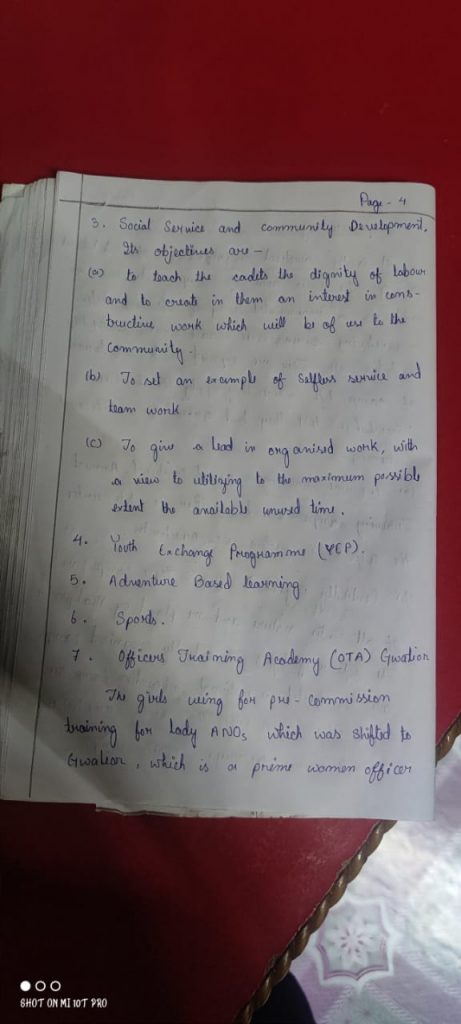 Page - 4
3. Social Service and community Development.
Its objectives are -
(a) to teach the cadets the dignity of labour
and to create in them an interest in cons-
tructive work which will be of use to the
community.
(b) To set an example of selfless service and
team work
(c) To give a lead in organised work, with
a view to utilizing to the maximum possible
extent the available unused time.
4. Youth Exchange Programme (YEP).
5. Adventure Based learning.
6. Sports.
7. Officers Training Academy (OTA) Gwalior
The girls wing for pre-commission
training for lady ANOs which was shifted to
Gwalior, which is a prime women officer
SHOT ON MI 10T PRO